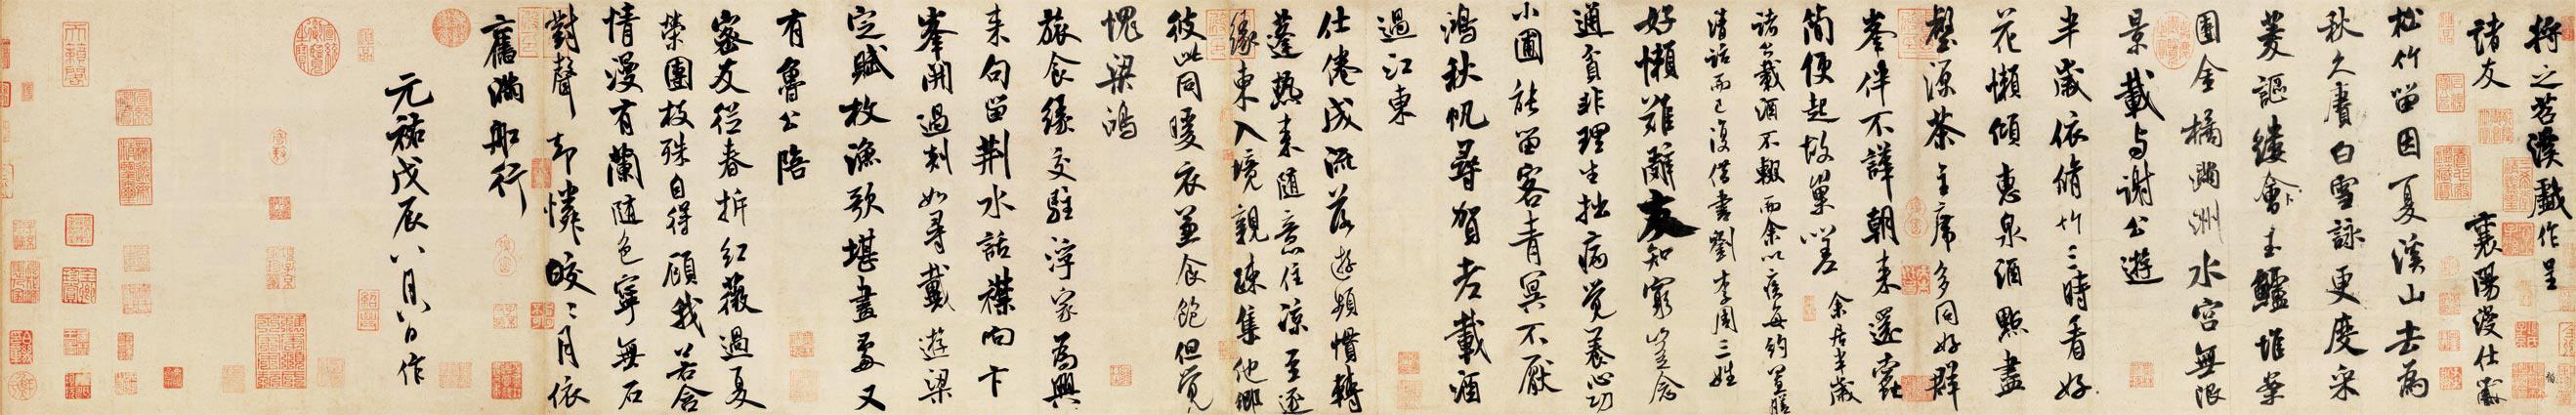 將之苕溪戲作呈
諸友 襄陽漫仕黻
松竹留因夏溪山去為
秋久賡白雪詠更度采
菱謳縷會玉鱸堆案
團金橘滿洲水宮無限
景載与謝公遊
半歲依脩竹三時看好
花懶傾惠泉酒點盡
壑源茶主席多同好群
峯伴不譁朝來還蠹
簡便起故巢嗟 余居半歲
諸公載酒不輟而余以疾每約置膳
清話而已復借書劉李周三姓
好懶難辭友知窮豈念
通貧非理生拙病覺養心功
小圃能留客青冥不厭
鴻秋帆尋賀老載酒
過江東
仕倦成流落遊頻慣轉
蓬熱來隨意住涼至逐
緣東入境親疎集他鄉
彼此同暖衣兼食飽但覺
愧梁鴻
旅食緣交駐浮家為興
來句留荆水話襟向卞
峯開過剡如尋戴遊梁
定賦枚漁歌堪畫處又
有魯公陪
密友從春拆紅薇過夏
榮團枝殊自得顧我若含
情漫有蘭隨色寧無石
對聲却憐皎皎月依
舊滿船行
元祐戊辰八月八日作